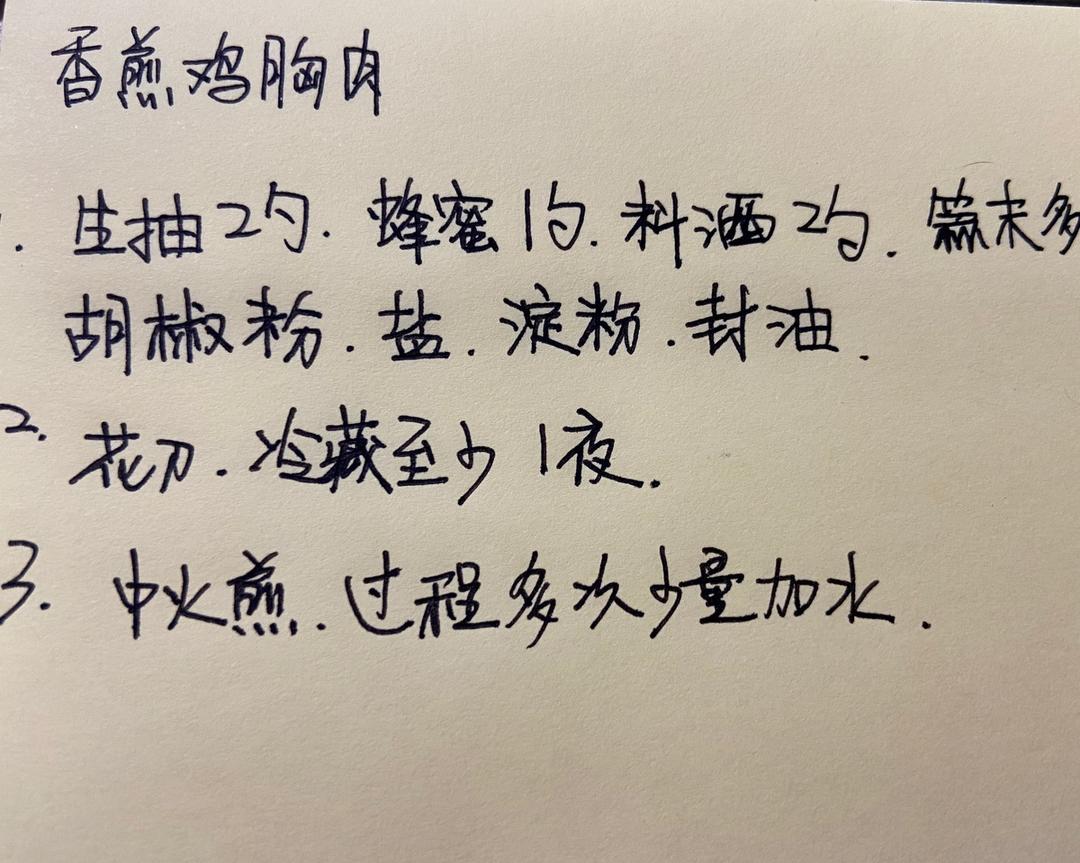 香煎鸡胸肉
. 生抽2勺. 蜂蜜1勺. 料酒2勺. 蒜末多
胡椒粉. 盐. 淀粉. 封油.
2. 花刀. 冷藏至少1夜.
3. 中火煎. 过程多次少量加水.